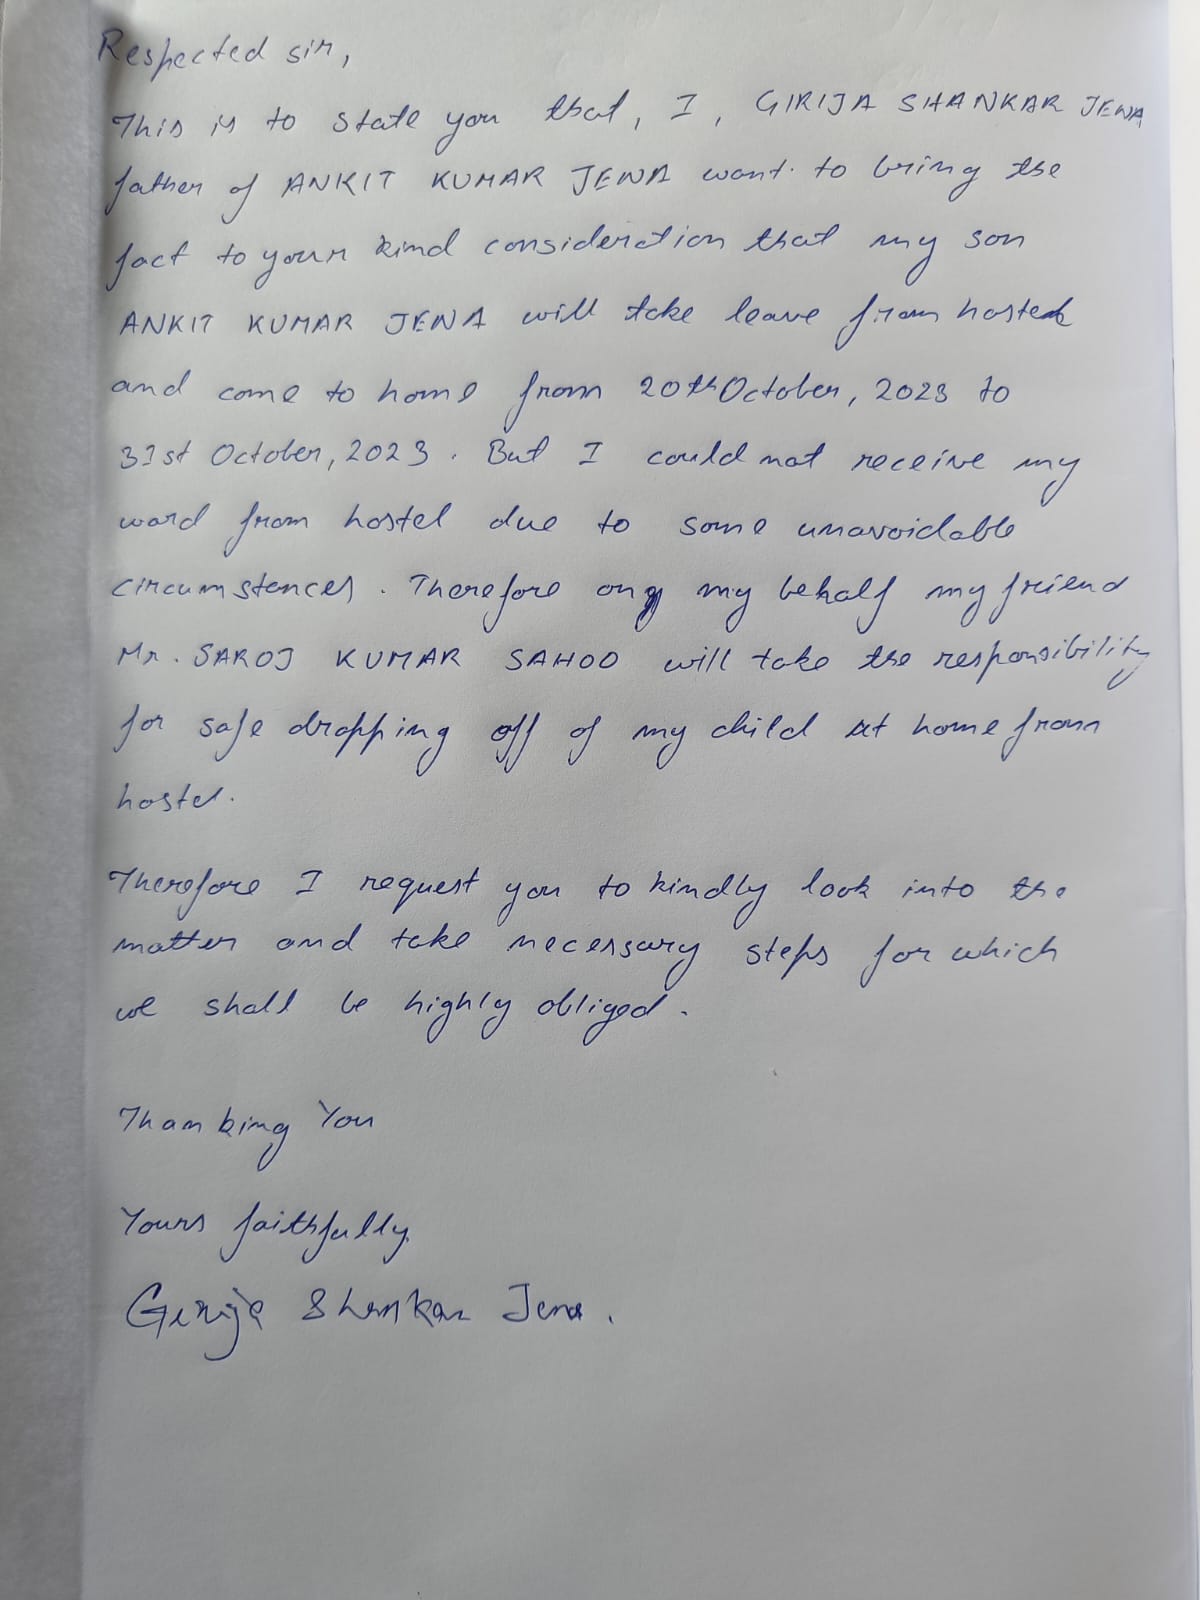 Respected sir,
This is to state you that, I, GIRIJA SHANKAR JENA
father of ANKIT KUMAR JENA want to bring the
fact to your kind consideration that my son
ANKIT KUMAR JENA will take leave from hostel
and come to home from 20th October, 2023 to
31st October, 2023. But I could not receive my
ward from hostel due to some unavoidable
circumstances. Therefore on my behalf my friend
Mr. SAROJ KUMAR SAHOO will take the responsibility
for safe dropping off of my child at home from
hostel.
Therefore I request you to kindly look into the
matter and take necessary steps for which
we shall be highly obliged.
Thanking You
Yours faithfully
Girija Shankar Jena.